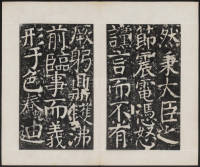 然秉大臣之
節震電馮怒
讜言而不有
厥躬鼎鑊沸
前臨事而義
形于色奉迪